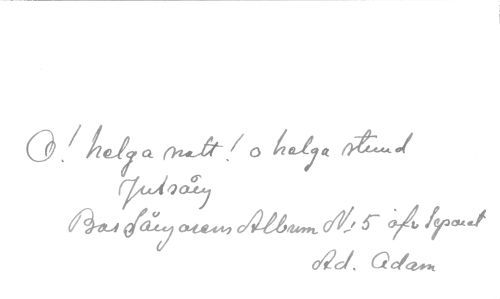 O! helga natt! o helga stund
Julsång
Bas Sångarens Album No: 5 äfv Separat
Ad. Adam